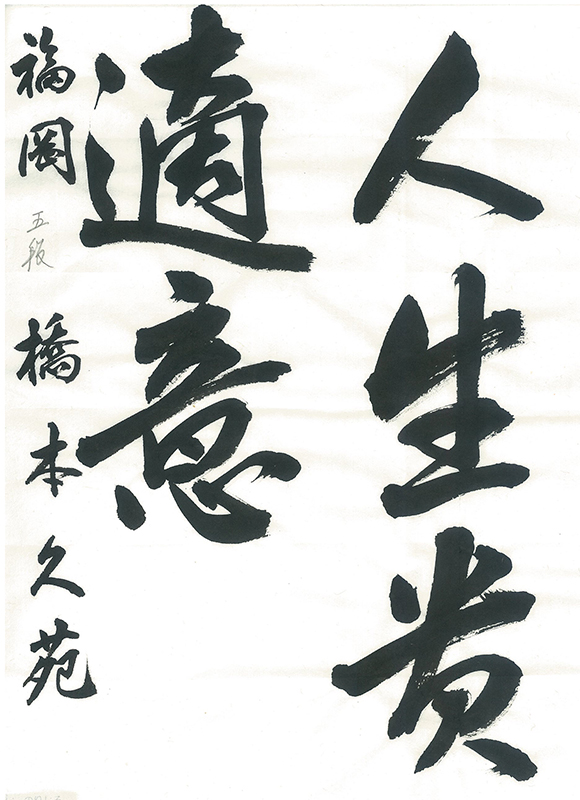 人生貴
適意
福岡 五段 橋本久苑